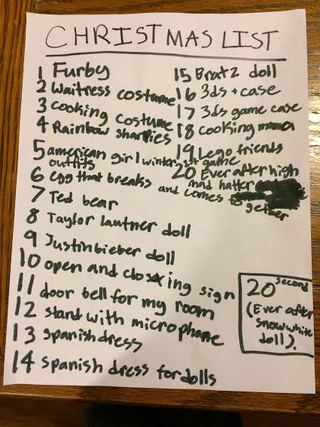 CHRISTMAS LIST
1 Furby
2 Waitress costume
3 cooking costume
4 Rainbow sharpies
5 american girl winter
outfits
6 egg that breaks and comes together
7 Ted bear
8 Taylor lautner doll
9 Justin bieber doll
10 open and closing sign
11 door bell for my room
12 stand with microphone
13 spanish dress
14 spanish dress for dolls
15 Bratz doll
16 3ds + case
17 3ds game case
18 cooking mama
19 Lego friends
game
20 Ever after high
mad hatter
20 second
(Ever after
snow white
doll).